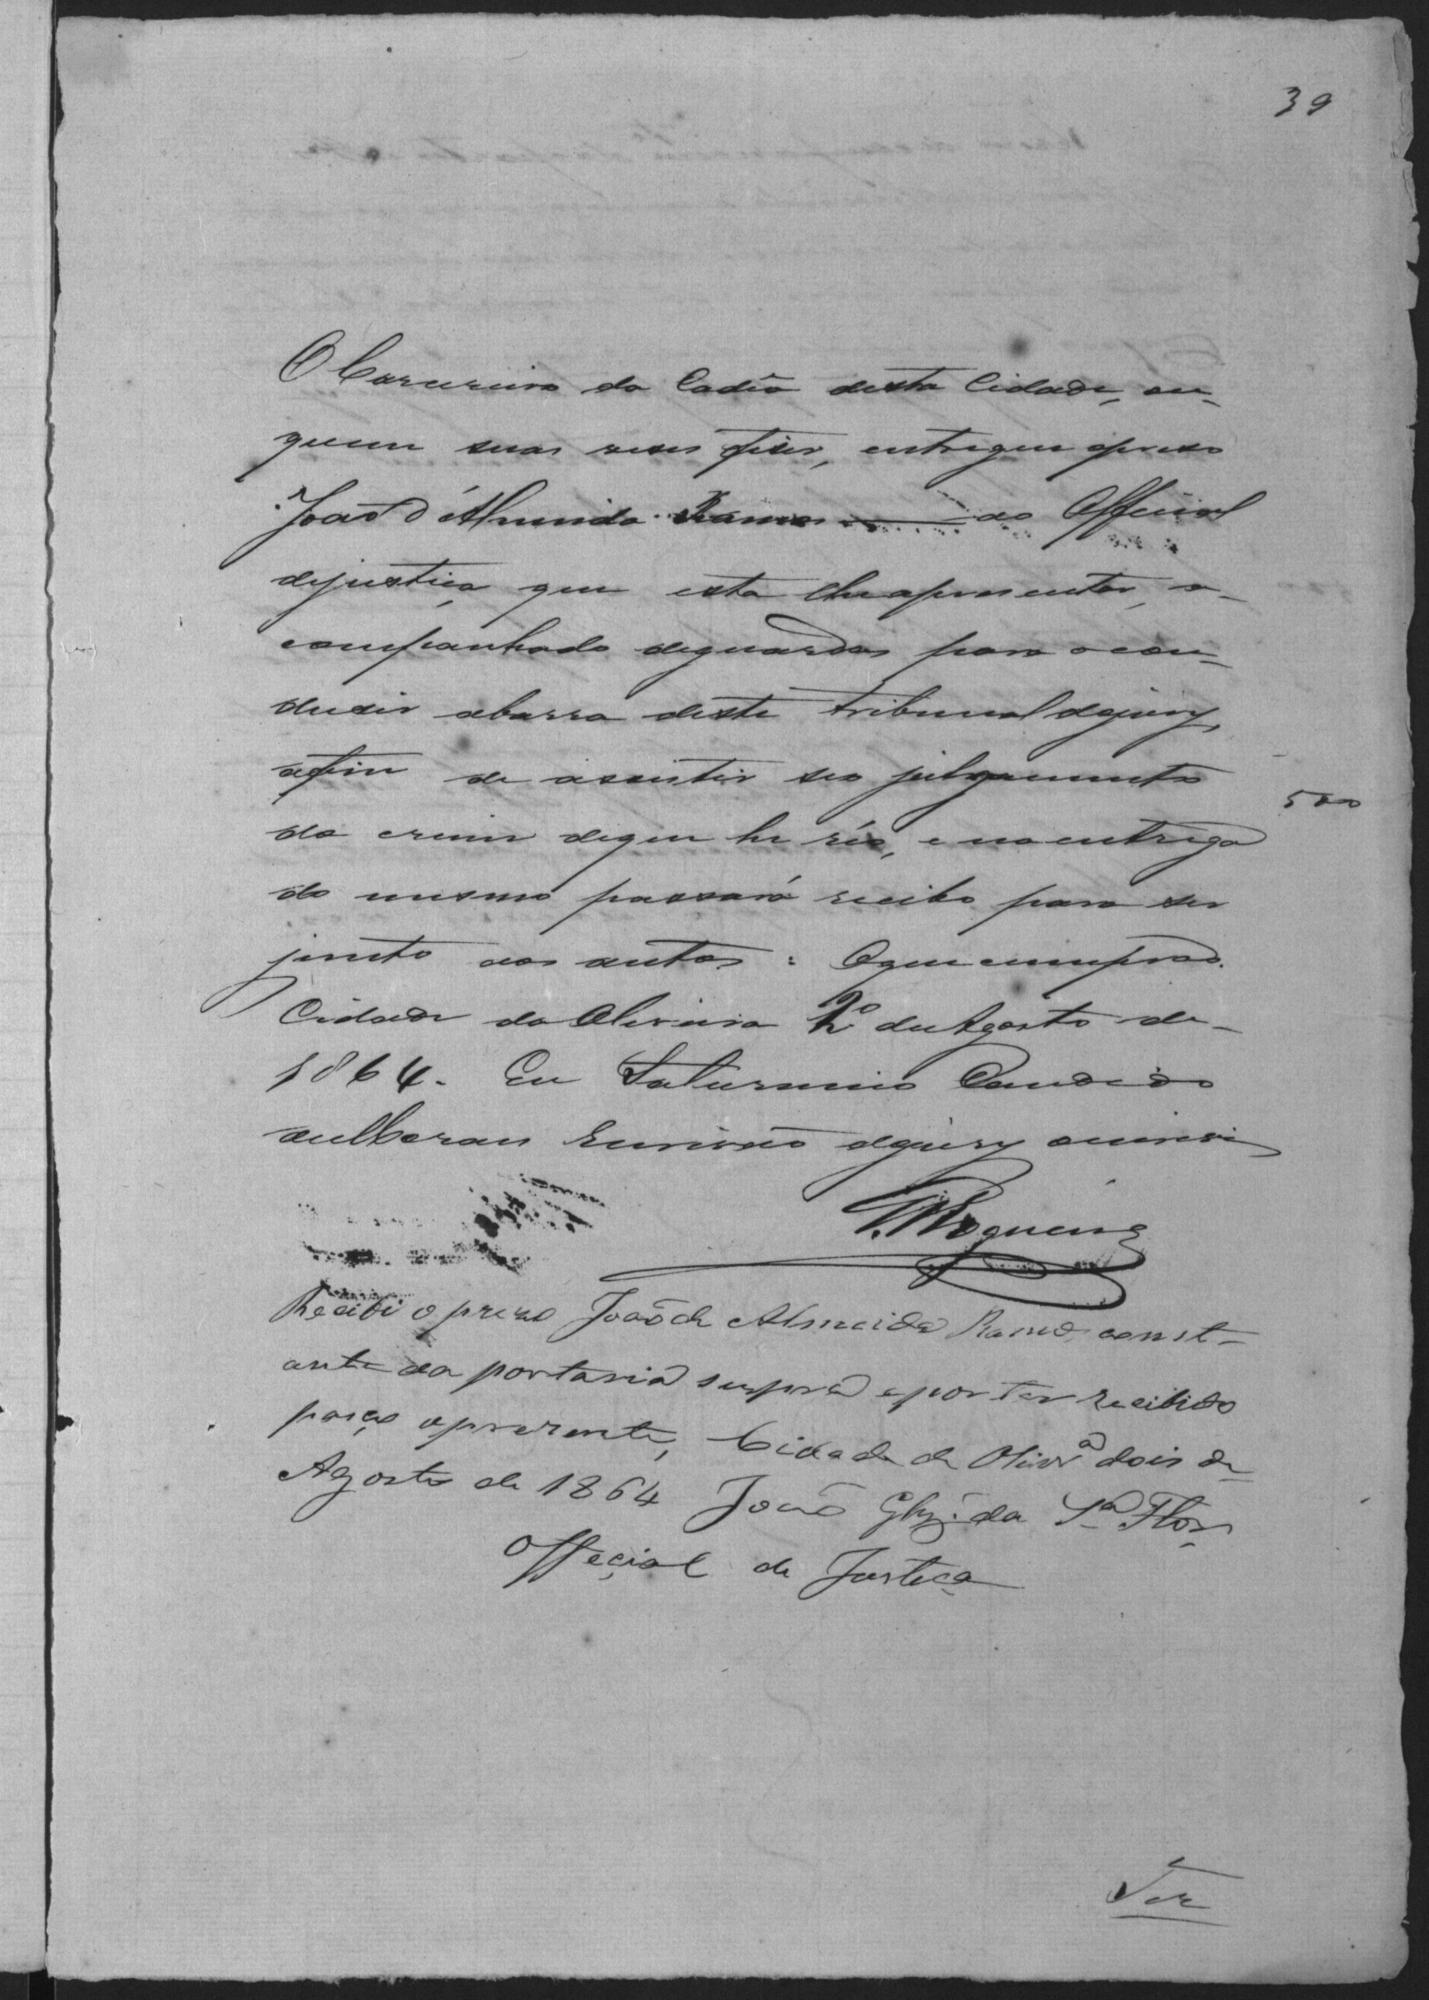 39
O Carcereiro da Cadêa desta Cidade, ou
quem suas veses fiser, entregue opreso
João d'Almeida Ramos ao Official
dejustiça que esta lheapresentar, a-
companhado deguardas para ocon-
dusir abarra deste tribunal dejury,
afim de assistir seo julgamento
500
do crime deque he réo, e naentrega
do mesmo passará recibo para ser
junto aos autos: Oquecumprão.
Cidade da Oliveira 2 de Agosto de
1864. Eu Saturnino Candido
Escrivão dejury
Nogueira
Recebi o prezo João de Almeida Ramos const-
ante da portaria supra epor ter recibido
paço aprezente, Cidade de Olivrª dois de
Agosto de 1864 João Glz' da Sª Flor
Offecial de Justeça
Ter